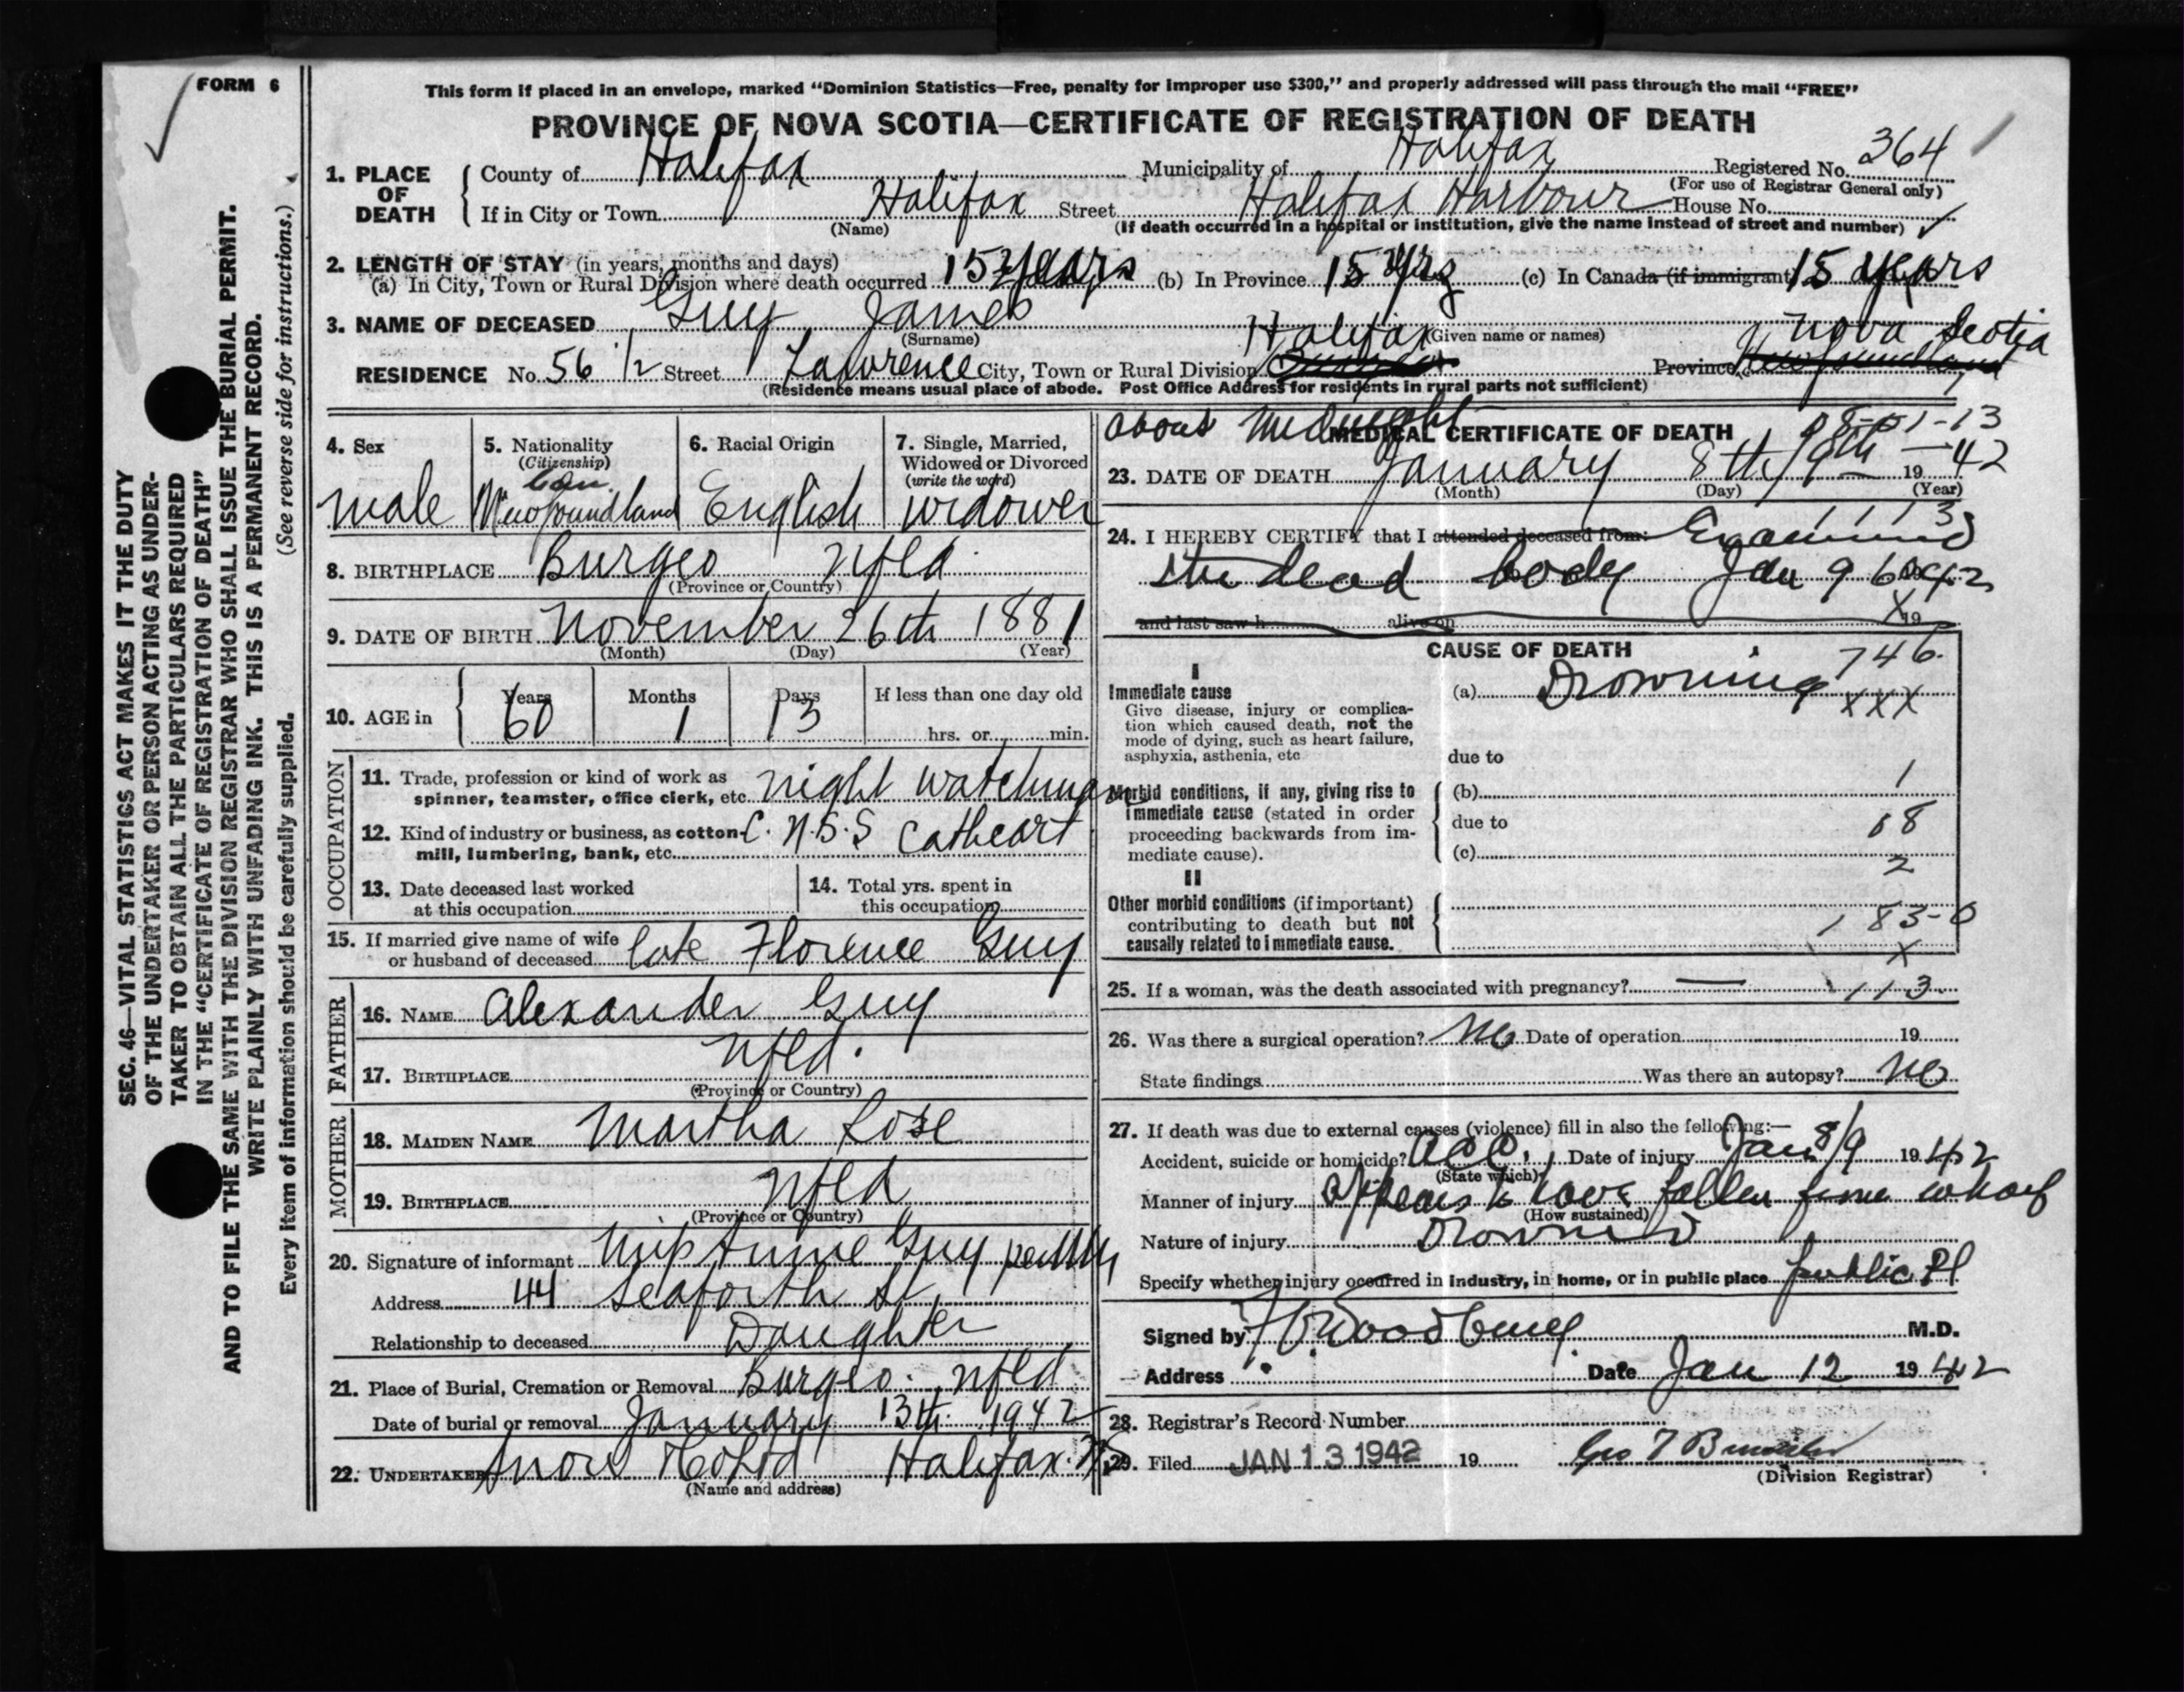 FORM 6
This form if placed in an envelope, marked "Dominion Statistics—Free, penalty for improper use $300," and properly addressed will pass through the mail "FREE"
PROVINCE OF NOVA SCOTIA—CERTIFICATE OF REGISTRATION OF DEATH
1. PLACE OF DEATH County of Halifax Municipality of Halifax Registered No. 364
(For use of Registrar General only)
If in City or Town Halifax Street Halifax Harbour House No.
(Name) (If death occurred in a hospital or institution, give the name instead of street and number)
2. LENGTH OF STAY (in years, months and days)
(a) In City, Town or Rural Division where death occurred 15 years (b) In Province 15 yrs (c) In Canada (if immigrant) 15 years
3. NAME OF DECEASED Guy James
(Surname) (Given name or names)
RESIDENCE No. 56 1/2 Street Lawrence City, Town or Rural Division Halifax Province Nova Scotia Newfoundland
(Residence means usual place of abode. Post Office Address for residents in rural parts not sufficient)
4. Sex
male
5. Nationality
(Citizenship)
Can.
Newfoundland
6. Racial Origin
English
7. Single, Married,
Widowed or Divorced
(write the word)
widower
8. BIRTHPLACE Burgeo Nfld.
(Province or Country)
9. DATE OF BIRTH November 26th 1881
(Month) (Day) (Year)
10. AGE in Years Months Days If less than one day old
60 1 13 hrs. or min.
OCCUPATION
11. Trade, profession or kind of work as
spinner, teamster, office clerk, etc. night watchman
12. Kind of industry or business, as cotton-
mill, lumbering, bank, etc. C.N.S.S Cathcart
13. Date deceased last worked
at this occupation
14. Total yrs. spent in
this occupation
15. If married give name of wife
or husband of deceased late Florence Guy
FATHER
16. NAME Alexander Guy
17. BIRTHPLACE Nfld.
(Province or Country)
MOTHER
18. MAIDEN NAME Martha Rose
19. BIRTHPLACE Nfld
(Province or Country)
20. Signature of informant Miss Annie Guy
Address 44 Seaforth St.
Relationship to deceased Daughter
21. Place of Burial, Cremation or Removal Burgeo, Nfld
Date of burial or removal January 13th 1942
22. UNDERTAKER Snow & Co Ltd Halifax. N.S.
(Name and address)
about midnight 08-01-13
MEDICAL CERTIFICATE OF DEATH
23. DATE OF DEATH January 8th/9th 1942
(Month) (Day) (Year)
1113
24. I HEREBY CERTIFY that I attended deceased from: Examined
the dead body Jan 9 1942
and last saw h alive on X 19
CAUSE OF DEATH
746.
I
Immediate cause
Give disease, injury or complica-
tion which caused death, not the
mode of dying, such as heart failure,
asphyxia, asthenia, etc
(a) Drowning
XXX
due to
1
Morbid conditions, if any, giving rise to
immediate cause (stated in order
proceeding backwards from im-
mediate cause).
(b)
due to
08
(c)
2
II
Other morbid conditions (if important)
contributing to death but not
causally related to immediate cause.
183-0
X
25. If a woman, was the death associated with pregnancy? — 113
26. Was there a surgical operation? No Date of operation 19
State findings Was there an autopsy? No
27. If death was due to external causes (violence) fill in also the following:—
Accident, suicide or homicide? Acc. Date of injury Jan 8/9 1942
(State which)
Manner of injury Appears to have fallen from wharf
(How sustained)
Nature of injury Drowned
Specify whether injury occurred in industry, in home, or in public place public Pl
Signed by Woodbury M.D.
Address Date Jan 12 1942
28. Registrar's Record Number
29. Filed JAN 13 1942 19 Geo T
(Division Registrar)
SEC. 46—VITAL STATISTICS ACT MAKES IT THE DUTY
OF THE UNDERTAKER OR PERSON ACTING AS UNDER-
TAKER TO OBTAIN ALL THE PARTICULARS REQUIRED
IN THE "CERTIFICATE OF REGISTRATION OF DEATH"
AND TO FILE THE SAME WITH THE DIVISION REGISTRAR WHO SHALL ISSUE THE BURIAL PERMIT.
WRITE PLAINLY WITH UNFADING INK. THIS IS A PERMANENT RECORD.
Every item of information should be carefully supplied. (See reverse side for instructions.)